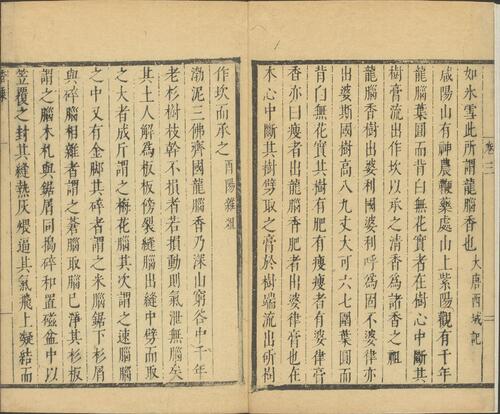 如氷雪此所謂龍腦香也 大唐西域記
咸陽山有神農鞭藥處山上紫陽觀有千年
龍腦葉圓而背白無花實者在樹心中斷其
樹膏流出作坎以承之清香爲諸香之祖
龍腦香樹出婆利國婆利呼爲固不婆律亦
出婆斯國樹高八九丈大可六七圍葉圓而
背白無花實其樹有肥有瘦瘦者有婆律膏
香亦曰瘦者出龍腦香肥者出婆律膏也在
木心中斷其樹劈取之膏於樹端流出斫樹
作坎而承之 酉陽雜俎
渤泥三佛齊國龍腦香乃深山窮谷中千年
老杉樹枝幹不損者若損動則氣泄無腦矣
其土人解爲板板傍裂縫腦出縫中劈而取
之大者成斤謂之梅花腦其次謂之速腦腦
之中又有金脚其碎者謂之米腦鋸下杉屑
與碎腦相雜者謂之蒼腦取腦已淨其杉板
謂之腦木札與鋸屑同搗碎和置磁盆中以
笠覆之封其縫熱灰煨逼其氣飛上凝結而